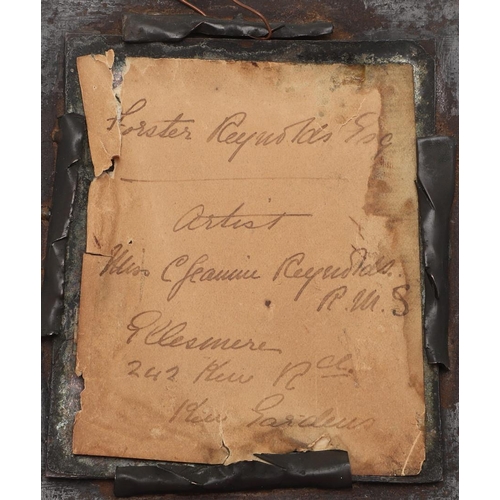 Forster Reynolds Esq
Artist
Miss C Jeanine Reynolds.
R.M.S
Ellesmere
242 Kew Rd.
Kew Gardens